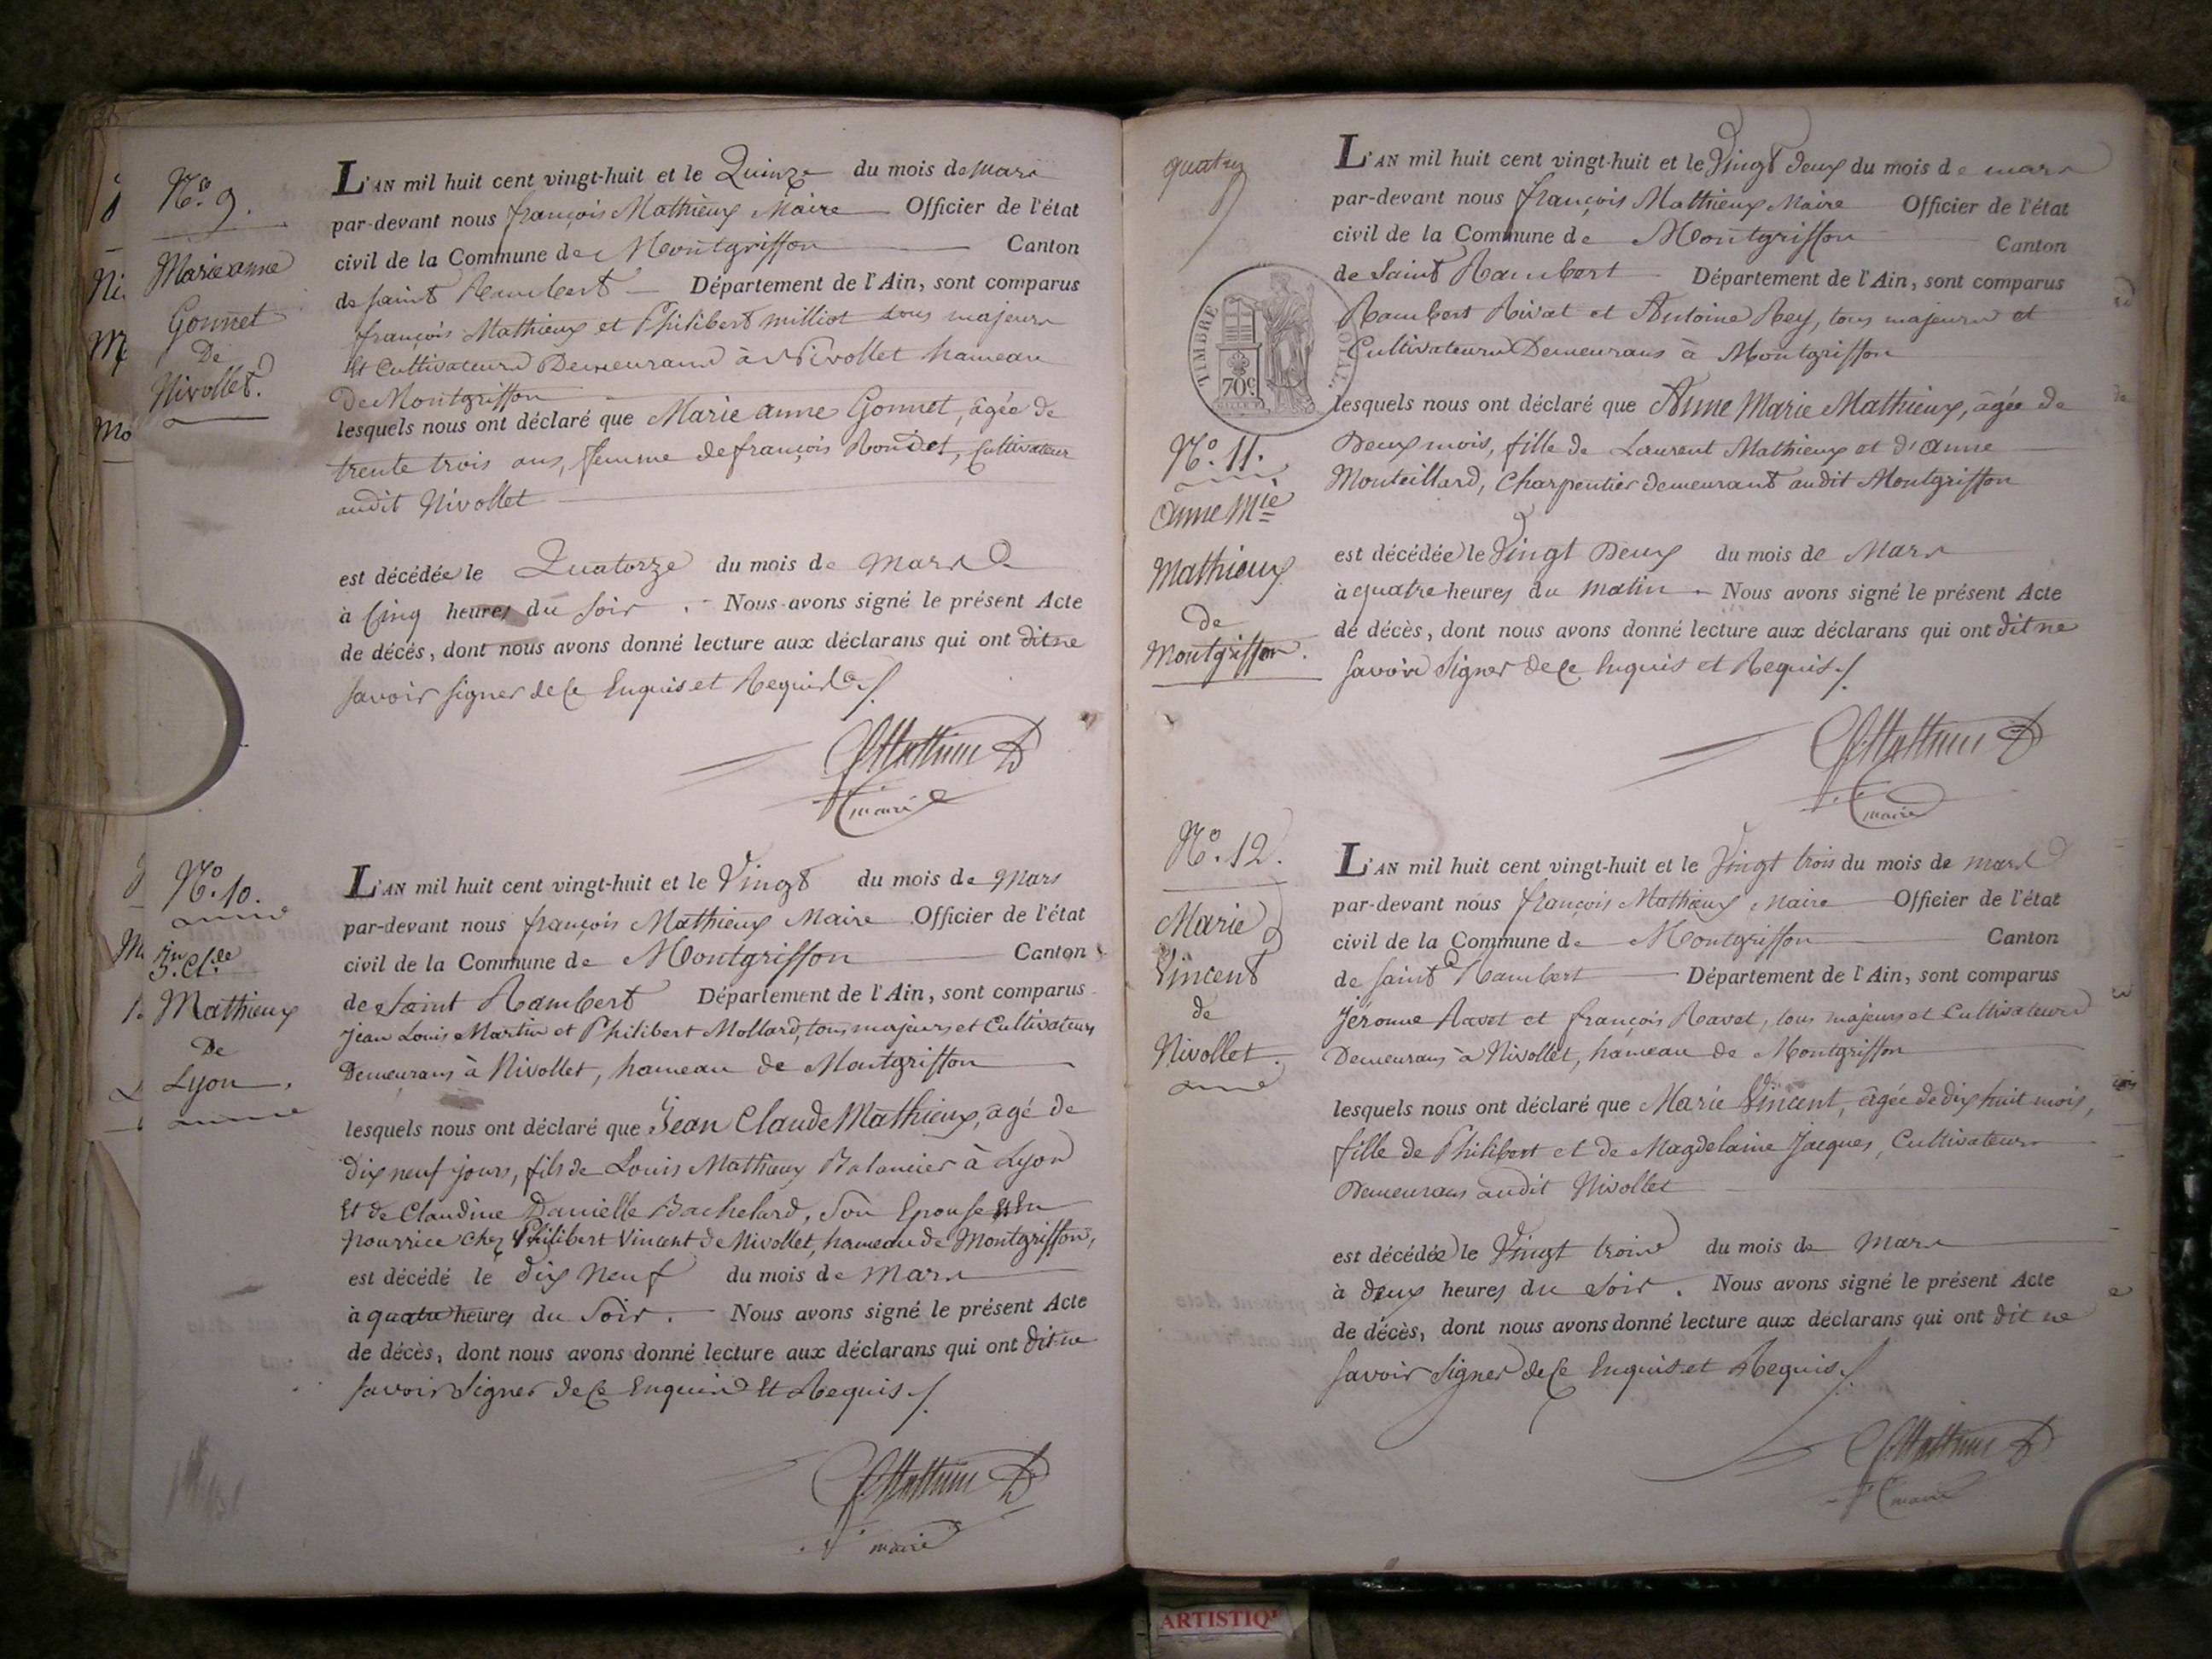 N.º 9.
Marie anne
Gonnet
De
Nivollet.
L'AN mil huit cent vingt-huit et le Quinze du mois de Mars
par-devant nous françois Mathieux Maire Officier de l'état
civil de la Commune de Montgriffon Canton
de saint Rambert Département de l'Ain, sont comparus
françois Mathieux et Philibert Milliot tous majeurs
Et Cultivateurs Demeurans à Nivollet hameau
De Montgriffon
lesquels nous ont déclaré que Marie anne Gonnet, âgée de
trente trois ans, femme de françois Rondet, Cultivateur
audit Nivollet
est décédée le Quatorze du mois de Mars
à Cinq heures du Soir. Nous avons signé le présent Acte
de décés, dont nous avons donné lecture aux déclarans qui ont dit ne
savoir signer de Ce Enquis et Requis ./.
Mathieux
maire
N.º 10.
Jn Cl.de
Mathieux
De
Lyon.
L'AN mil huit cent vingt-huit et le Vingt du mois de Mars
par-devant nous françois Mathieux Maire Officier de l'état
civil de la Commune de Montgriffon Canton
de Saint Rambert Département de l'Ain, sont comparus
Jean Louis Martin et Philibert Mollard, tous majeurs et Cultivateurs
Demeurans à Nivollet, hameau de Montgriffon
lesquels nous ont déclaré que Jean Claude Mathieux, agé de
Dix neuf jours, fils de Louis Mathieux Balancier à Lyon
Et de Claudine Danielle Bachelard, Son Epouse En
Nourrice chez Philibert Vincent de Nivollet, hameau de Montgriffon,
est décédé le dix Neuf du mois de Mars
à quatre heures du Soir. Nous avons signé le présent Acte
de décès, dont nous avons donné lecture aux déclarans qui ont dit ne
savoir Signer de Ce Enquis Et Requis ./.
Mathieux
maire
TIMBRE ROYAL.
70c
N.º 11.
Anne Mie
Mathieux
de
Montgriffon.
L'AN mil huit cent vingt-huit et le Vingt deux du mois de mars
par-devant nous françois Mathieux Maire Officier de l'état
civil de la Commune de Montgriffon Canton
de Saint Rambert Département de l'Ain, sont comparus
Rambert Rivat et Antoine Rey, tous majeurs et
Cultivateurs Demeurans à Montgriffon
lesquels nous ont déclaré que Anne Marie Mathieux, âgée de
Deux mois, fille de Laurent Mathieux et d'anne
Monteillard, Charpentier demeurant audit Montgriffon
est décédée le Vingt Deux du mois de Mars
à quatre heures du matin. Nous avons signé le présent Acte
de décès, dont nous avons donné lecture aux déclarans qui ont dit ne
savoir Signer de Ce Enquis et Requis ./.
Mathieux
maire
N.º 12.
Marie
Vincent
de
Nivollet.
L'AN mil huit cent vingt-huit et le Vingt trois du mois de mars
par-devant nous françois Mathieux Maire Officier de l'état
civil de la Commune de Montgriffon Canton
de Saint Rambert Département de l'Ain, sont comparus
Jérome Ravet et françois Ravet, tous majeurs et Cultivateurs
Demeurans à Nivollet, hameau de Montgriffon
lesquels nous ont déclaré que Marie Vincent, âgée de dix huit mois,
fille de Philibert et de Magdelaine Jacques, Cultivateurs
Demeurans audit Nivollet
est décédée le Vingt trois du mois de Mars
à deux heures du Soir. Nous avons signé le présent Acte
de décès, dont nous avons donné lecture aux déclarans qui ont dit ne
savoir Signer de Ce Enquis et Requis ./.
Mathieux
maire
ARTISTIQ